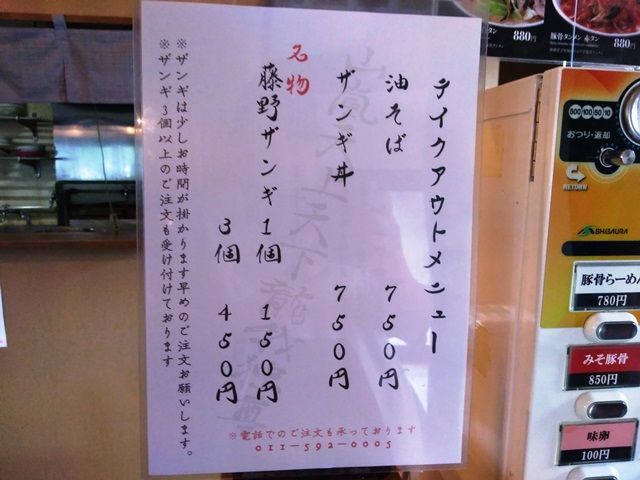 テイクアウトメニュー
油そば 750円
ザンギ丼 750円
名物
藤野ザンギ 1個 150円
3個 450円
※ザンギは少しお時間が掛かります早めのご注文お願いします。
※ザンギ3個以上のご注文も受け付けております
※電話でのご注文も承っております
011-592-0005
880円
豚骨タンメン 赤タン
880円
500 100 50 10
おつり・返却
RETURN
SHIBAURA
豚骨らーめん
780円
みそ豚骨
850円
味卵
100円